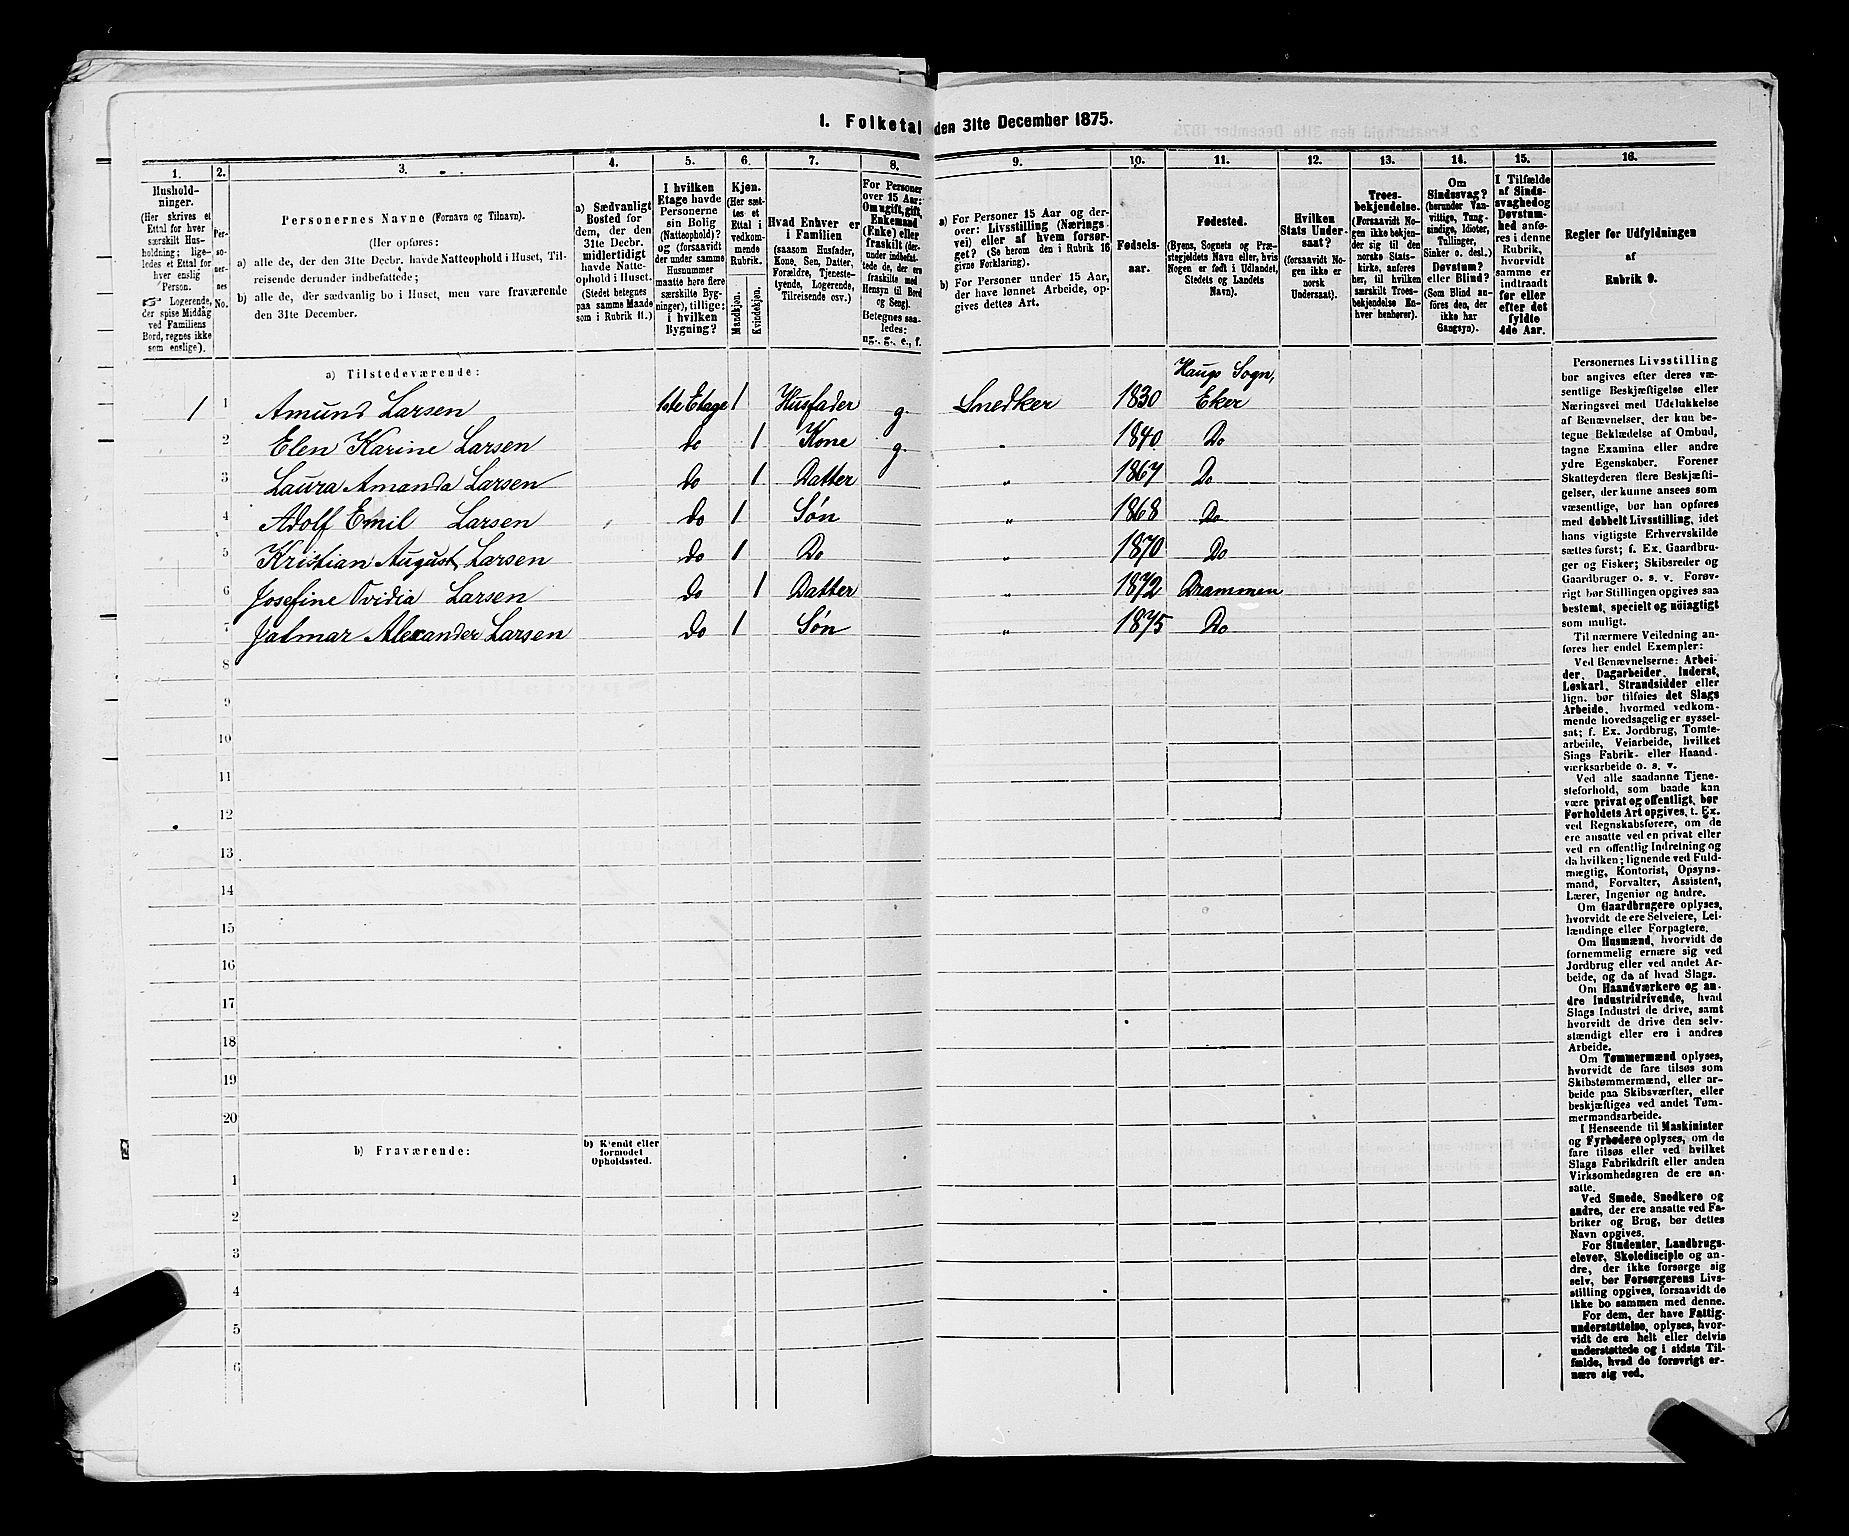 1. Folketal den 31te December 1875.
1. 2. 3. 4. 5. 6. 7. 8. 9. 10. 11. 12. 13. 14. 15. 16.
Hushold-
ninger.
(Her skrives et
Ettal for hver
særskilt Hus-
holdning; lige-
ledes et Ettal for
hver enslig
Person.
☞ Logerende,
der spise Middag
ved Familiens
Bord, regnes ikke
som enslige).
Per-
so-
ner-
nes
No.
Personernes Navne (Fornavn og Tilnavn).
(Her opføres:
a) alle de, der den 31te Decbr. havde Natteophold i Huset, Til-
reisende derunder indbefattede;
b) alle de, der sædvanlig bo i Huset, men vare fraværende
den 31te December.
a) Sædvanligt
Bosted for
dem, der den
31te Decbr.
midlertidigt
havde Natte-
ophold i Huset.
(Stedet betegnes
paa samme Maade
som i Rubrik 11.)
I hvilken
Etage havde
Personerne
sin Bolig
(Natteophold)?
og (forsaavidt
der under samme
Husnummer
maatte høre flere
særskilte Byg-
ninger), tillige:
i hvilken
Bygning?
Kjøn.
(Her sæt-
tes et
Ettal i
vedkom-
mende
Rubrik.
Mandkjøn.
Kvindekjøn.
Hvad Enhver er
i Familien
(saasom Husfader,
Kone, Søn, Datter,
Forældre, Tjeneste-
tyende, Logerende,
Tilreisende osv.)
For Personer
over 15 Aar:
Om ugift, gift,
Enkemand
(Enke) eller
fraskilt (der-
under indbefat-
tede de, der ere
fraskilte med
Hensyn til Bord
og Seng).
Betegnes saa-
ledes:
ug., g., e., f.
a) For Personer 15 Aar og der-
over: Livsstilling (Nærings-
vei) eller af hvem forsør-
get? (Se herom den i Rubrik 16
givne Forklaring).
b) For Personer under 15 Aar,
der have lønnet Arbeide, op-
gives dettes Art.
Fødsels-
aar.
Fødested.
(Byens, Sognets og Præ-
stegjeldets Navn eller, hvis
Nogen er født i Udlandet,
Stedets og Landets
Navn).
Hvilken
Stats Under-
saat?
(forsaavidt No-
gen ikke er
norsk
Undersaat).
Troes-
bekjendelse.
(Forsaavidt No-
gen ikke bekjen-
der sig til den
norske Stats-
kirke, anføres
her, til hvilken
særskilt Troes-
bekjendelse En-
hver henhører).
Om
Sindssvag?
(herunder Van-
vittige, Tung-
sindige, Idioter,
Tullinger,
Sinker o. desl.)
Døvstum?
eller Blind?
(Som Blind an-
føres den, der
ikke har
Gangsyn).
I Tilfælde
af Sinds-
svaghed og
Døvstum-
hed anfø-
res i denne
Rubrik,
hvorvidt
samme er
indtraadt
før eller
efter det
fyldte
4de Aar.
Regler for Udfyldningen
af
Rubrik 9.
a) Tilstedeværende:
Haugs Sogn,
1 1 Amund Larsen 1ste Etage 1 Husfader g. Snedker 1830 Eker
2 Elen Karine Larsen do 1 Kone g. " 1840 Do
3 Laura Amanda Larsen do 1 Datter " 1867 Do
4 Adolf Emil Larsen do 1 Søn " 1868 Do
5 Kristian August Larsen do 1 Do " 1870 Do
6 Josefine Ovidia Larsen do 1 Datter " 1872 Drammen
7 Jalmar Alexander Larsen do 1 Søn " 1875 Do
8
9
10
11
12
13
14
15
16
17
18
19
20
b) Fraværende:
b) Kjendt eller
formodet
Opholdssted.
1
2
3
4
5
6
Personernes Livsstilling
bør angives efter deres væ-
sentlige Beskjæftigelse eller
Næringsvei med Udelukkelse
af Benævnelser, der kun be-
tegne Beklædelse af Ombud,
tagne Examina eller andre
ydre Egenskaber. Forener
Skatteyderen flere Beskjæfti-
gelser, der kunne ansees som
væsentlige, bør han opføres
med dobbelt Livsstilling, idet
hans vigtigste Erhvervskilde
sættes først; f. Ex. Gaardbru-
ger og Fisker; Skibsreder og
Gaardbruger o. s. v. Forøv-
rigt bør Stillingen opgives saa
bestemt, specielt og nøiagtigt
som muligt.
Til nærmere Veiledning an-
føres her endel Exempler:
Ved Benævnelserne: Arbei-
der, Dagarbeider, Inderst,
Løskarl, Strandsidder eller
lign. bør tilføies det Slags
Arbeide, hvormed vedkom-
mende hovedsagelig er syssel-
sat; f. Ex. Jordbrug, Tomte-
arbeide, Veiarbeide, hvilket
Slags Fabrik- eller Haand-
værksarbeide o. s. v.
Ved alle saadanne Tjene-
steforhold, som baade kan
være privat og offentligt, bør
Forholdets Art opgives, t. Ex.
ved Regnskabsførere, om de
ere ansatte ved en privat eller
ved en offentlig Indretning og
da hvilken; lignende ved Fuld-
mægtig, Kontorist, Opsyns-
mand, Forvalter, Assistent,
Lærer, Ingeniør og andre.
Om Gaardbrugere oplyses,
hvorvidt de ere Selveiere, Lei-
lændinge eller Forpagtere.
Om Husmænd, hvorvidt de
fornemmelig ernære sig ved
Jordbrug eller ved andet Ar-
beide, og da af hvad Slags.
Om Haandværkere og an-
dre Industridrivende, hvad
Slags Industri de drive, samt
hvorvidt de drive den selv-
stændigt eller ere i andres
Arbeide.
Om Tømmermænd oplyses,
hvorvidt de fare tilsøs som
Skibstømmermænd, eller ar-
beide paa Skibsværfter, eller
beskjæftiges ved andet Tøm-
mermandsarbeide.
I Henseende til Maskinister
og Fyrbødere oplyses, om de
fare tilsøs eller ved hvilket
Slags Fabrikdrift eller anden
Virksomhedsgren de ere an-
satte.
Ved Smede, Snedkere og
andre, der ere ansatte ved Fa-
briker og Brug, bør dettes
Navn opgives.
For Studenter, Landbrugs-
elever, Skoledisciple og an-
dre, der ikke forsørge sig
selv, bør Forsørgerens Livs-
stilling opgives, forsaavidt de
ikke bo sammen med denne.
For dem, der have Fattig-
understøttelse, oplyses, hvor-
vidt de ere helt eller delvis
understøttede og i sidste Til-
fælde, hvad de forøvrigt er-
nære sig ved.